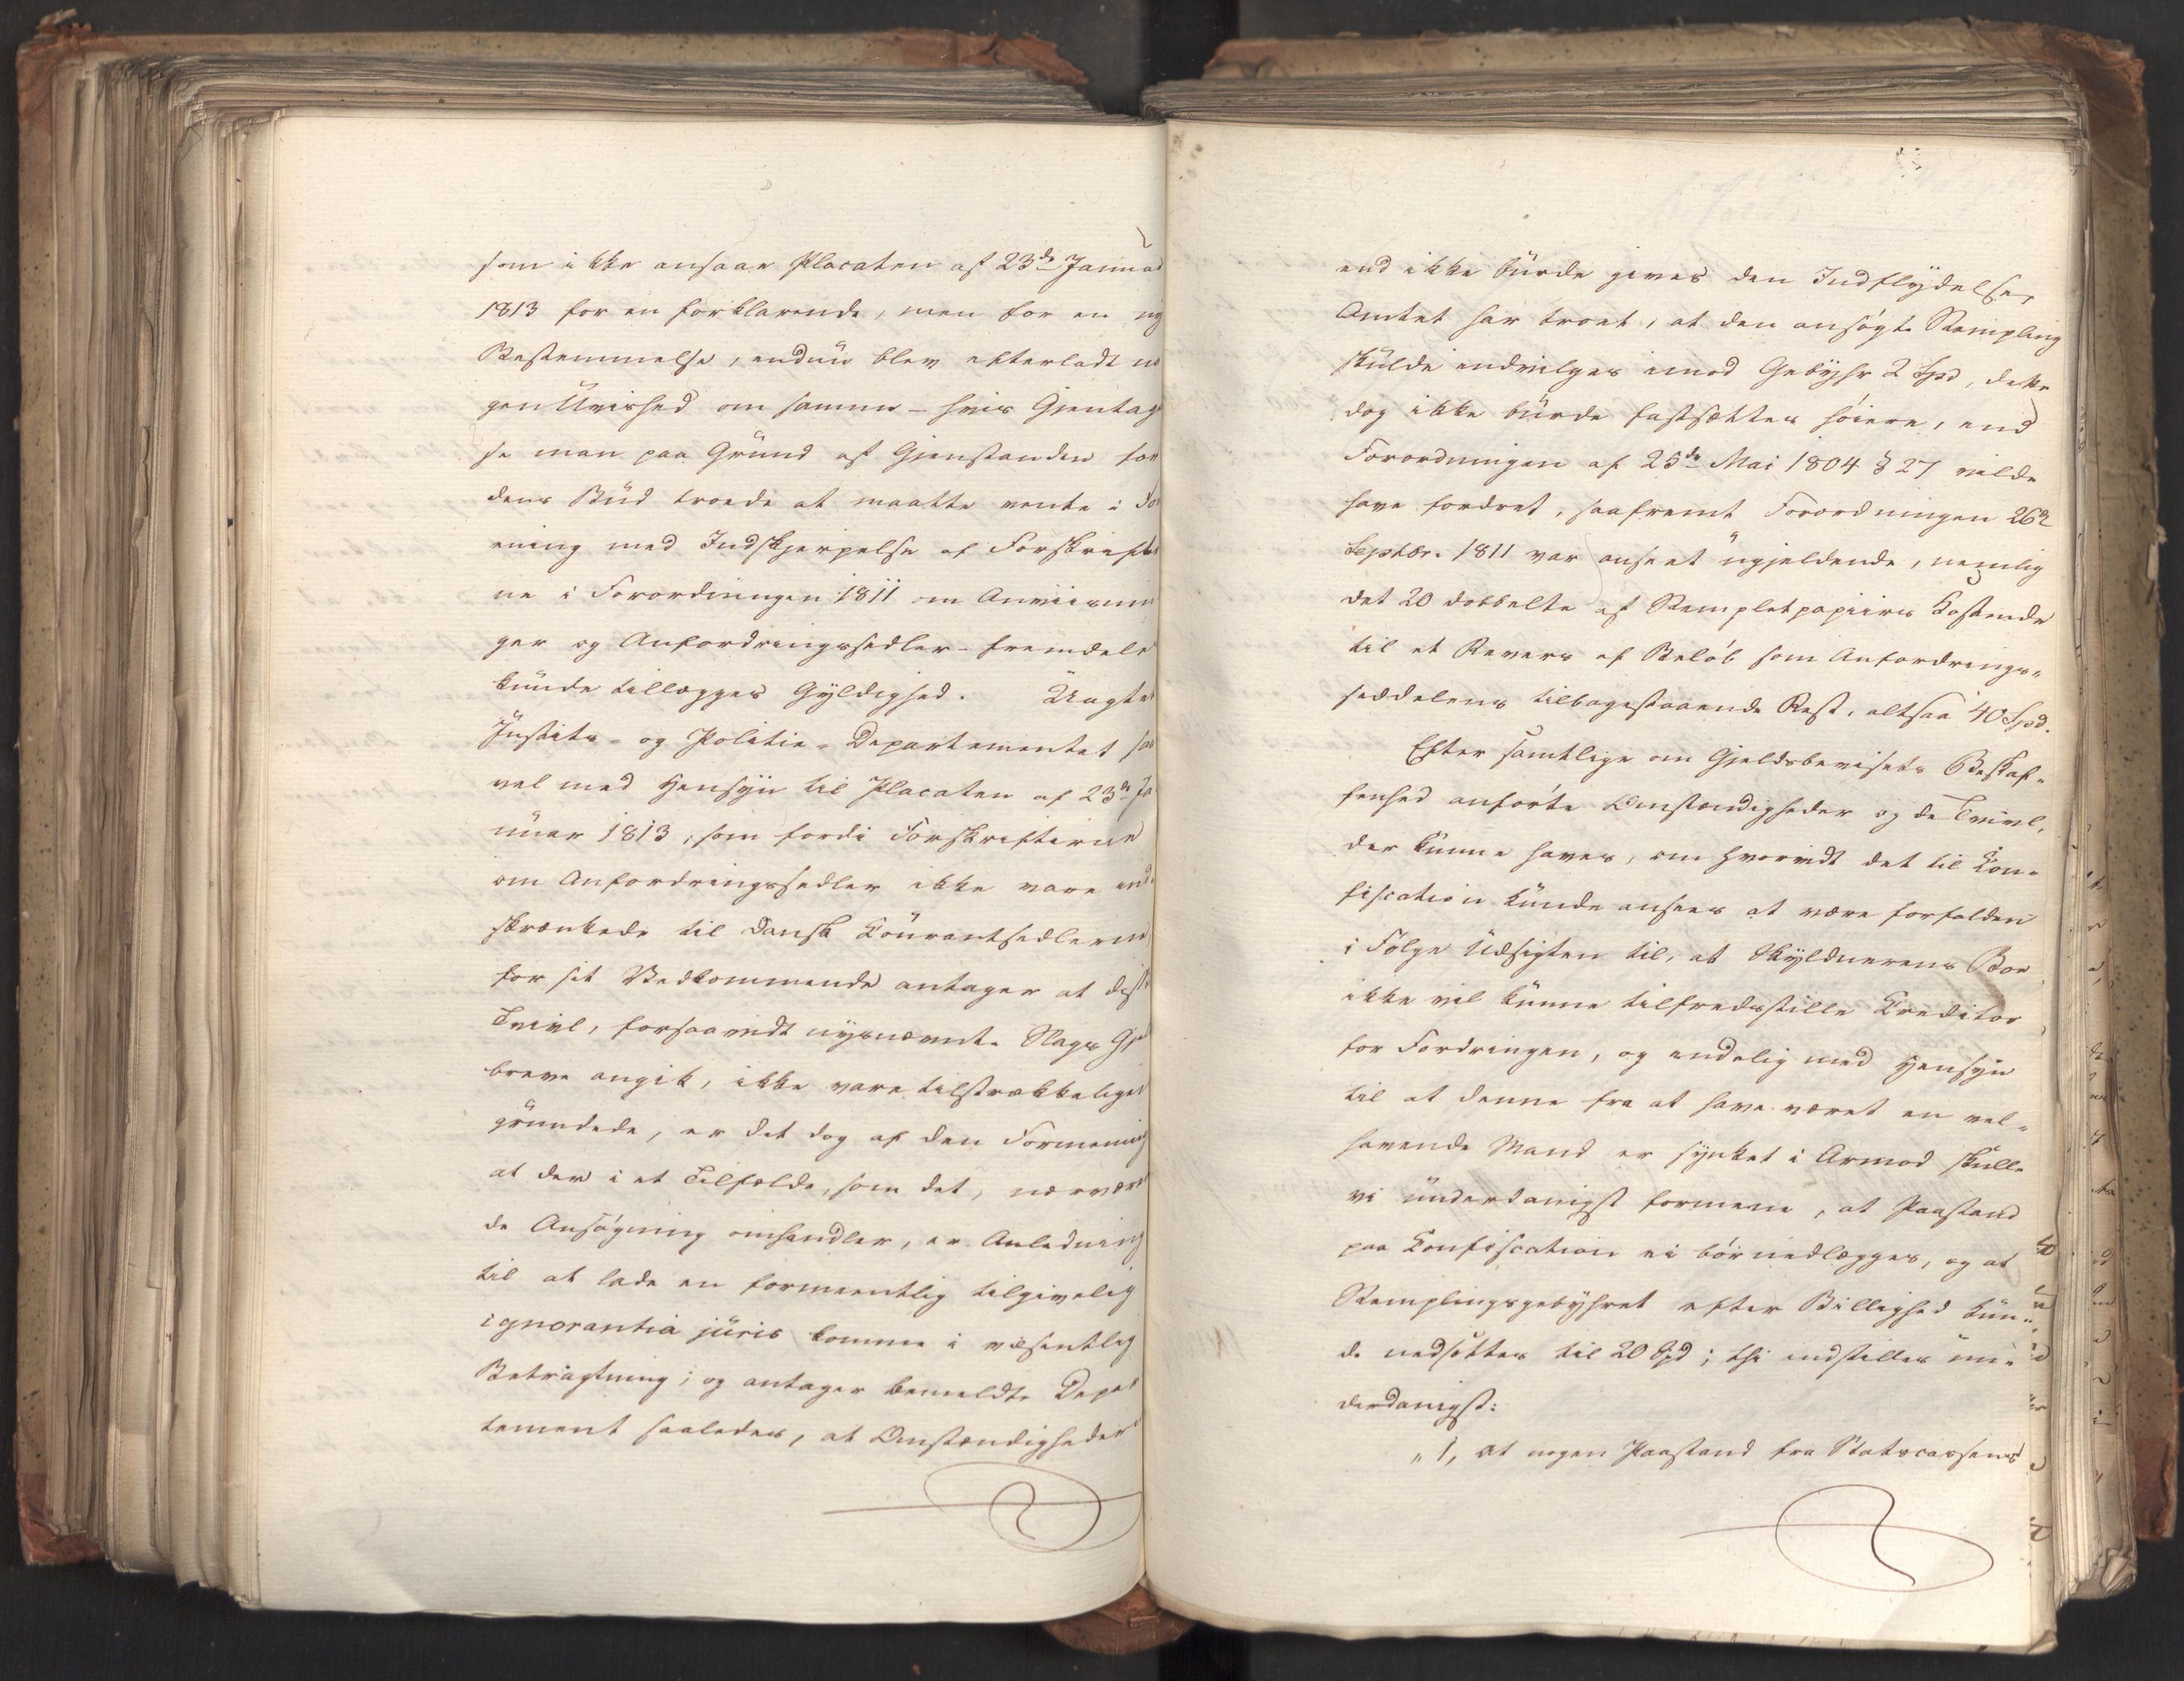 som ikke ansaae Placaten af 23de Januar
1813 for en forklarende, men for en ny
Bestemmelse, endnu blev efterladt no
gen Uvished om samme – hvis Gjentagel
se man paa Grund af Gjenstanden for
dens Bud troede at maatte vente i For
ening med Indskjerpelse af Forskrifter
ne i Forordningen 1811 om Anviisnin
ger og Anfordringssedler – fremdeles
kunde tillægges Gyldighed. Uagtet
Justits- og Politie-Departementet saa
vel med Hensyn til Placaten af 23de Ja
nuar 1813, som fordi Forskrifterne
om Anfordringssedler ikke vare ind-
skrænkede til dansk Courantsedlerne
for sit Vedkommende antager at disse
Tvivl, forsaavidt nysnævnte Slags Gjelds
breve angik, ikke vare tilstrækkeligen
grundede, er det dog af den Formening
at der i et Tilfælde, som det, nærværen
de Ansøgning omhandler, er Anledning
til at lade en formeentlig tilgivelig
ignorantia juris komme i væsentlig
Betragtning; og antager bemeldte Depar
tement saaledes, at Omstændighederne
end ikke burde gives den Indflydelse,
Amtet har troet, at den ansøgte Stempling
skulde indvilges imod Gebyhr 2 Spd, dette
dog ikke burde fastsættes høiere, end
Forordningen af 25de Mai 1804 § 27 vilde
have fordret, saafremt Forordningen 26de
Septbr. 1811 var anseet ugjeldende, nemlig
det 20 dobbelte af Stempletpapiirs Kostende
til et Revers af Beløb som Anfordrings-
seddelens tilbagestaaende Rest, altsaa 40 Spd.
Efter samtlige om Gjeldsbevisets Beskaf-
fenhed anførte Omstændigheder og de Tvivl,
der kunne haves, om hvorvidt det til Con-
fiscation kunde ansees at være forfalden
i Følge Udsigten til, at Skyldnerens Boe
ikke vil kunne tilfredsstille Creditor
for Fordringen, og endelig med Hensyn
til at denne fra at have været en vel-
havende Mand er synket i Armod skulle
vi underdanigst formene, at Paastand
paa Confiscation ei bør nedlægges, og at
Stemplingsgebyhret efter Billighed kun-
de nedsættes til 20 Spd; thi indstilles un-
derdanigst:
„1, at nogen Paastand fra Statscassens